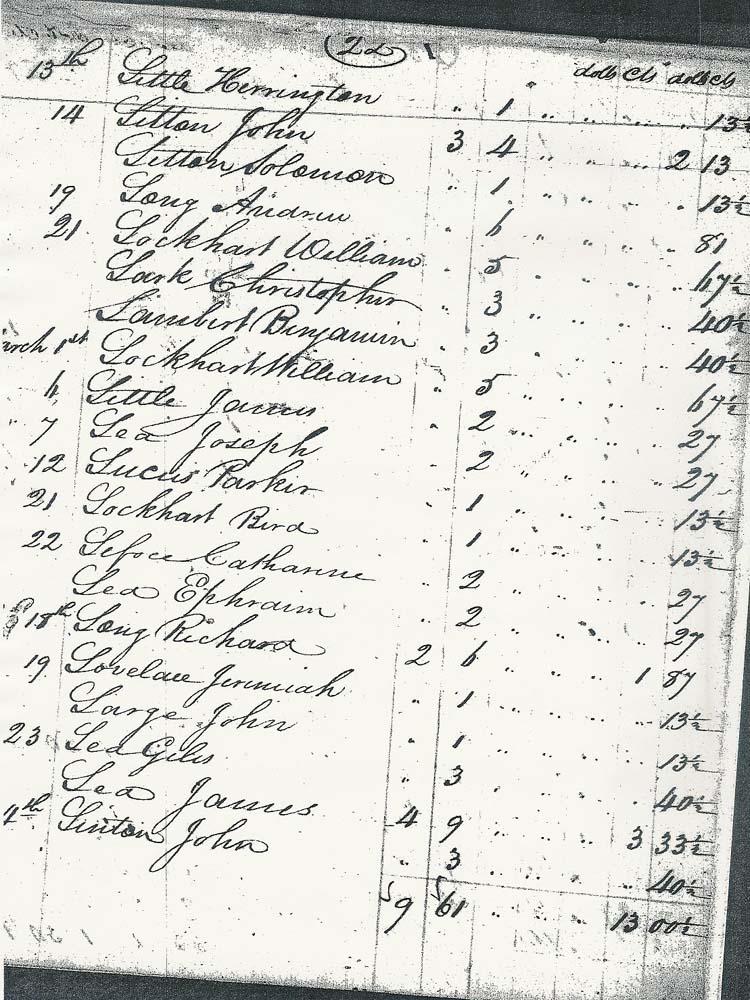 22
dolls Cts dolls Cts
13th Little Herrington " 1 " " " " " 13½
14 Litton John 3 4 " " " 2 13
Litton Solomon " 1 " " " " 13½
19 Long Andrew " 6 " " " " 81
21 Lockhart William " 5 " " " " 67½
Lark Christopher " 3 " " " " 40½
Lambert Benjamin " 3 " " " " 40½
arch 1st Lockhart William " 5 " " " " 67½
6 Little James " 2 " " " " 27
7 Lea Joseph " 2 " " " " 27
12 Lucus Parker " 1 " " " " 13½
21 Lockhart Bird " 1 " " " " 13½
22 Lefoce Catharine " 2 " " " " 27
Lea Ephraim " 2 " " " " 27
18th Long Richard 2 6 " " " 1 87
19 Lovelace Jeremiah " 1 " " " " 13½
Large John " 1 " " " " 13½
23 Lea Giles " 3 " " " " 40½
Lea James 4 9 " " " 3 33½
4th Linton John " 3 " " " " 40½
9 61 " " " 13 00½